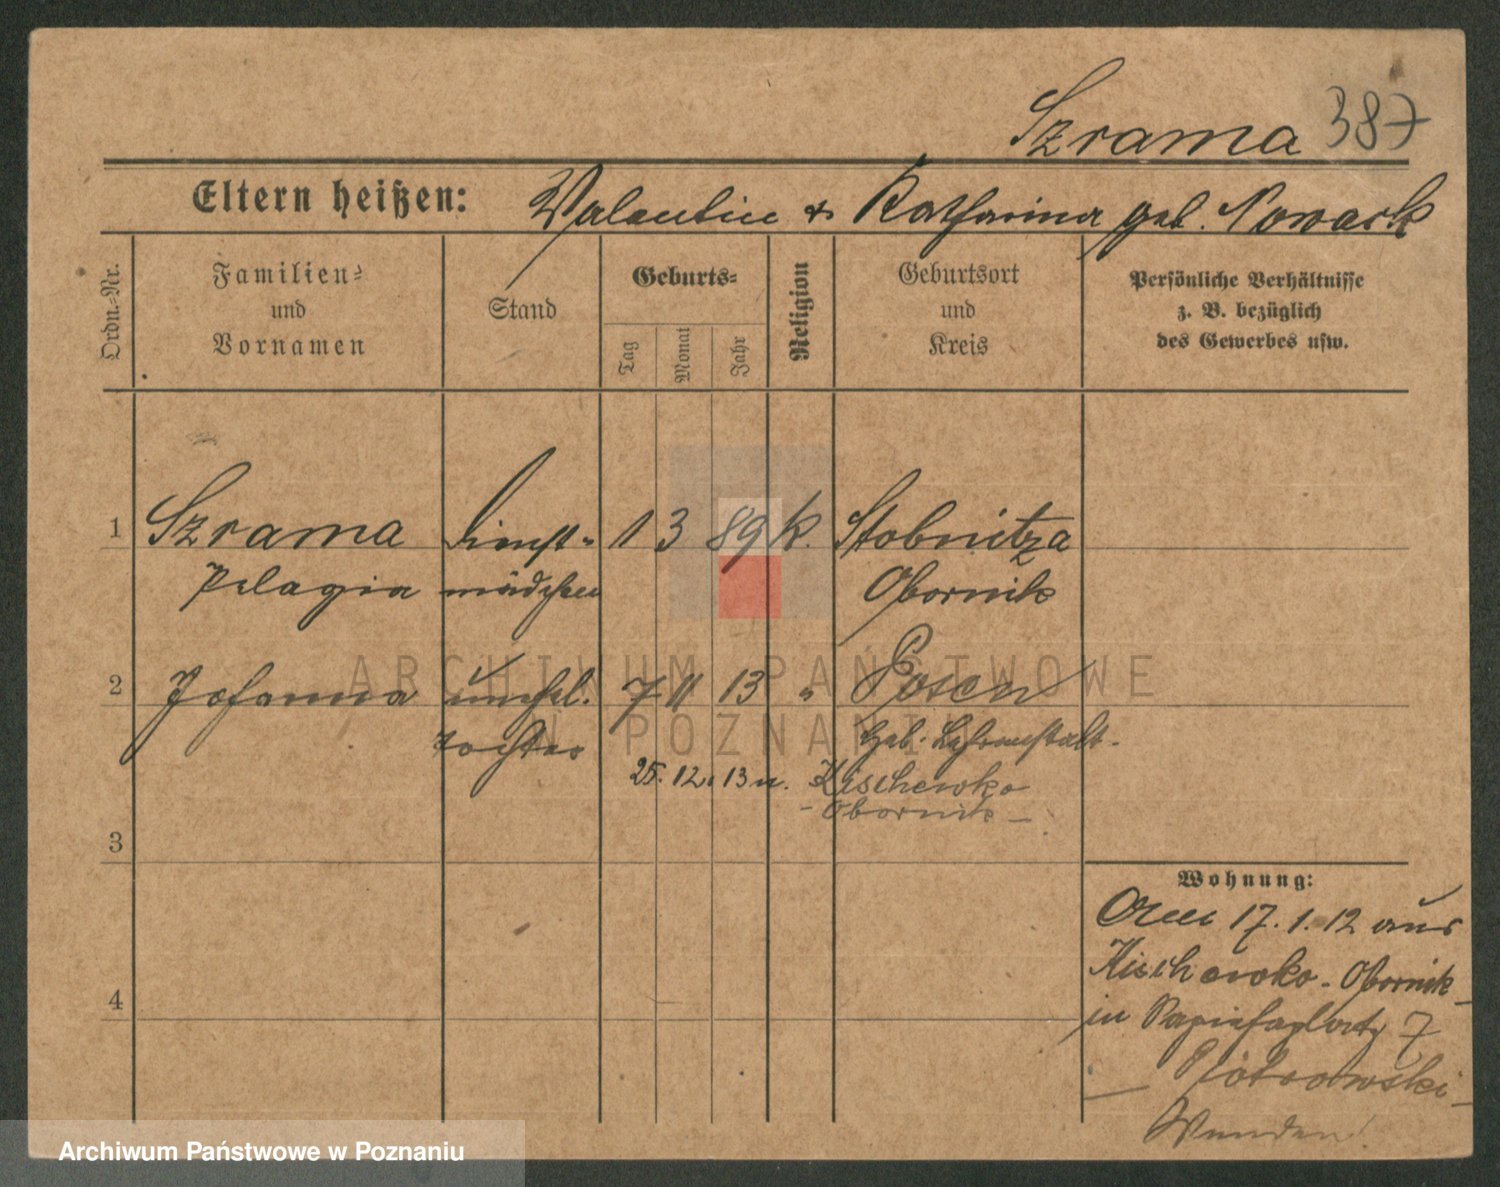 Szrama 387
Eltern heißen: Valentin & Katharina geb. Nowack
Ordn.-Nr.
Familien-
und
Vornamen
Stand
Geburts-
Tag
Monat
Jahr
Religion
Geburtsort
und
Kreis
Persönliche Verhältnisse
z. B. bezüglich
des Gewerbes usw.
1 Szrama Dienst- 1 3 89 k. Stobnitza
Pelagia mädchen Obornik
2 Johanna unehel. 7 11 13 " Posen
tochter Heb. Lehranstalt.
25. 12. 13 n. Kischewko
- Obornik -
3
4
Wohnung:
17. 1. 12 aus
Kischewko - Obornik -
in 7
Piotrowski -
ARCHIWUM PAŃSTWOWE
W POZNANIU
Archiwum Państwowe w Poznaniu